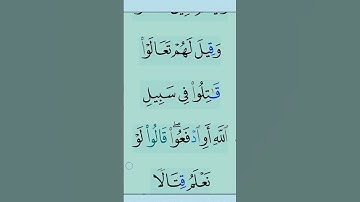 وَقِيلَ لَهُمۡ تَعَالَوۡاْ
قَٰتِلُواْ فِي سَبِيلِ
ٱللَّهِ أَوِ ٱدۡفَعُواْۖ قَالُواْ لَوۡ
نَعۡلَمُ قِتَالٗا